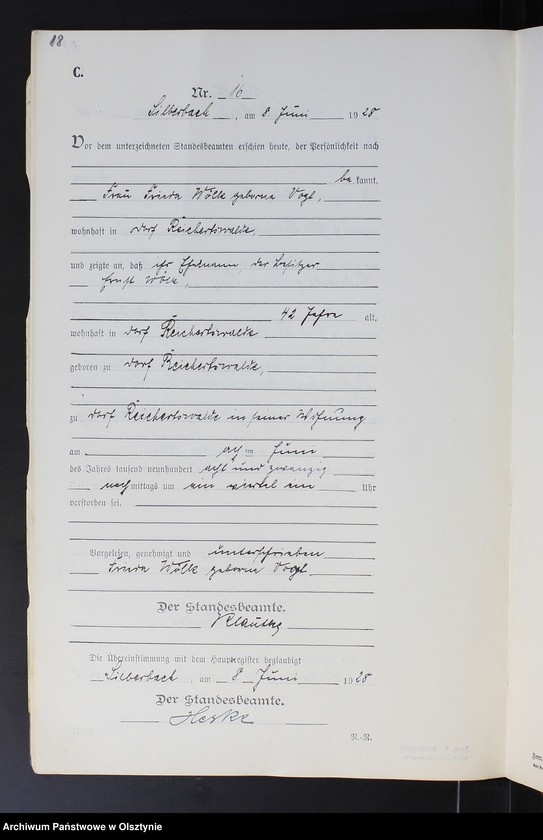 18
C.
Nr. 16
Silberbach, am 8. Juni 1928
Vor dem unterzeichneten Standesbeamten erschien heute, der Persönlichkeit nach
be kannt,
Frau Frieda Wölk geborene Vogl,
wohnhaft in Dorf Reichertswalde,
und zeigte an, daß ihr Ehemann, der Besitzer
Ernst Wölk,
42 Jahre alt,
wohnhaft in Dorf Reichertswalde
geboren zu Dorf Reichertswalde,
zu Dorf Reichertswalde in seiner Wohnung
am acht im Juni
des Jahres tausend neunhundert acht und zwanzig
nachmittags um ein viertel ein Uhr
verstorben sei.
Vorgelesen, genehmigt und unterschrieben
Frieda Wölk geborene Vogl
Der Standesbeamte.
Klautke
Die Übereinstimmung mit dem Hauptregister beglaubigt
Silberbach, am 8. Juni 1928
Der Standesbeamte.
R.-R.
Archiwum Państwowe w Olsztynie